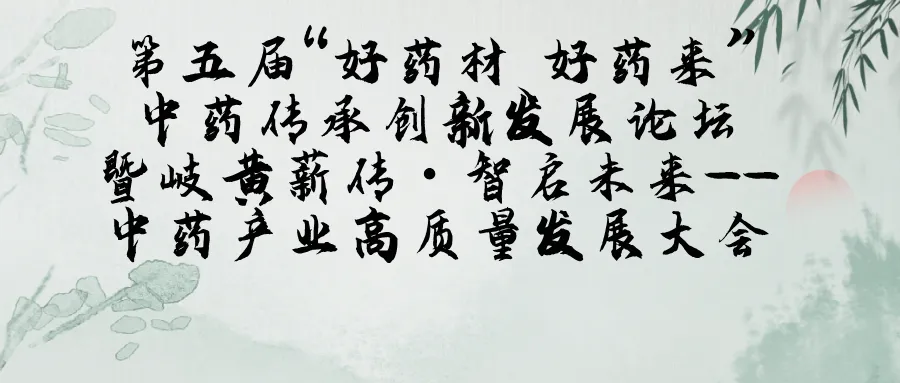 第五届“好药材 好药来”
中药传承创新发展论坛
暨岐黄薪传·智启未来——
中药产业高质量发展大会